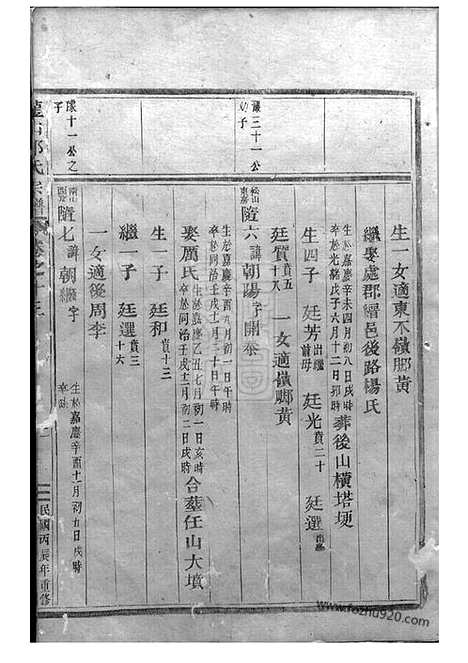 生一女適東不嶺腳黃
繼娶處郡縉邑後路楊氏
生於嘉慶辛未四月初八日戌時
卒於光緒戊子六月十二日卯時
葬後山橫塔埂
生四子 廷芳 出繼前母 廷光 賁二十 廷選 出繼
廷質 賁五十八 一女適嶺腳黃
隊三十一公幼子
松山東房
隨六 諱朝陽 字開泰
生於嘉慶辛酉九月初一日午時
卒於同治 十一月三十日午時
娶厲氏
生於嘉慶乙丑七月初一日亥時
卒於同治壬戌十二月初二日戌時
合葬任山大墳
生一子 廷和 賁十三
繼一子 廷選 賁三十六
一女適後周李
隊十一公之子
隨七 諱朝繼 字
生於嘉慶辛酉十一月初五日戌時
卒缺
氏宗譜
民國丙辰年重修
www.fozhu920.com